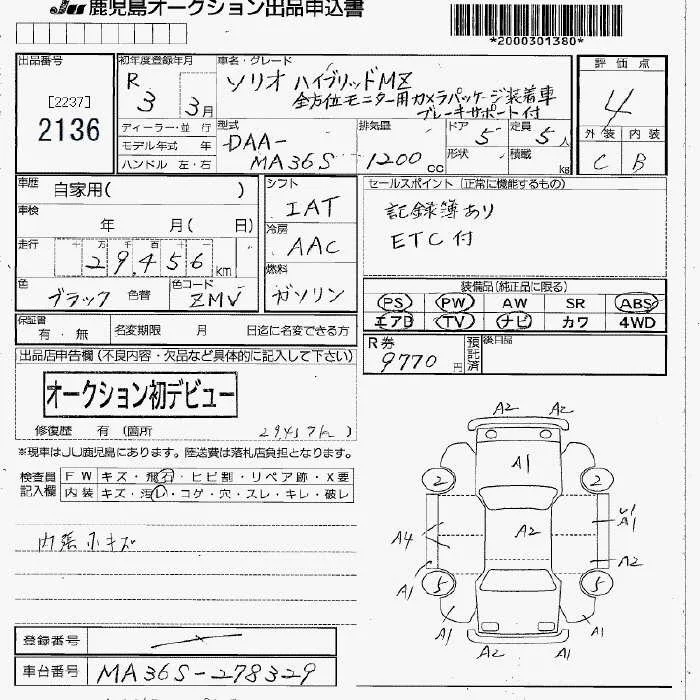 JU 鹿児島オークション出品申込書
*2000301380*
出品番号
[2237]
2136
初年度登録年月
R 3 3月
ディーラー・並 行
モデル年式 年
ハンドル 左・右
車名・グレード
ソリオ ハイブリッドMZ
全方位モニター用カメラパッケージ装着車
ブレーキサポート付
型式
DAA-
MA36S
排気量
1200cc
ドア
5
形状
定員
5人
積載
kg
評価点
4
外装 内装
C B
車歴
自家用( )
車検
年 月( 日)
走行
十 万 千 百 十 一
29,456km
色
ブラック 色替
色コード
ZMV
シフト
IAT
冷房
AAC
燃料
ガソリン
セールスポイント (正常に機能するもの)
記録簿あり
ETC付
装備品(純正品に限る)
PS PW AW SR ABS
エアB TV ナビ カワ 4WD
保証書
有・無
名変期限 月 日迄に名変できる方
R券
9770円
預託済
後日品
出品店申告欄(不良内容・欠品など具体的に記入して下さい)
オークション初デビュー
修復歴 有(箇所 29457k )
*現車はJU鹿児島にあります。陸送費は落札店負担となります。
検査員
記入欄
FW キズ・飛石・ヒビ割・リペア跡・X要
内装 キズ・汚レ・コゲ・穴・スレ・キレ・破レ
内張小キズ
A2 A2
A1
2 2
A2
A4
A1
A1
A2
A1
5 5
A1
A1
A2 A1
登録番号
車台番号
MA36S-278329